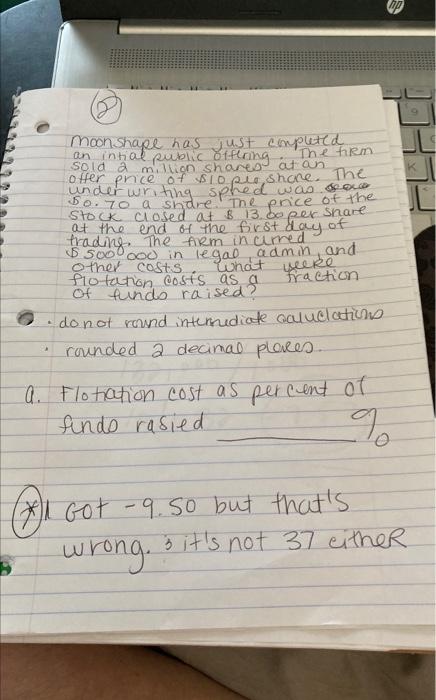 hp
②
Moonshape has just completd
an intial public offering. The firm
sold 2 million shares at an
offer price of $10 per share. The
underwriting spred was
$0.70 a share. The price of the
stock closed at $ 13.00 per share
at the end of the first day of
trading. The firm incurred
$500000 in legal, admin, and
other costs. What weere
flotation costs as a fraction
of funds raised?
• do not round intermudiate caluclations
• rounded 2 decimal places.
a. Flotration cost as percent of
funds rasied ______ %
* I Got -9.50 but that's
wrong. & it's not 37 either